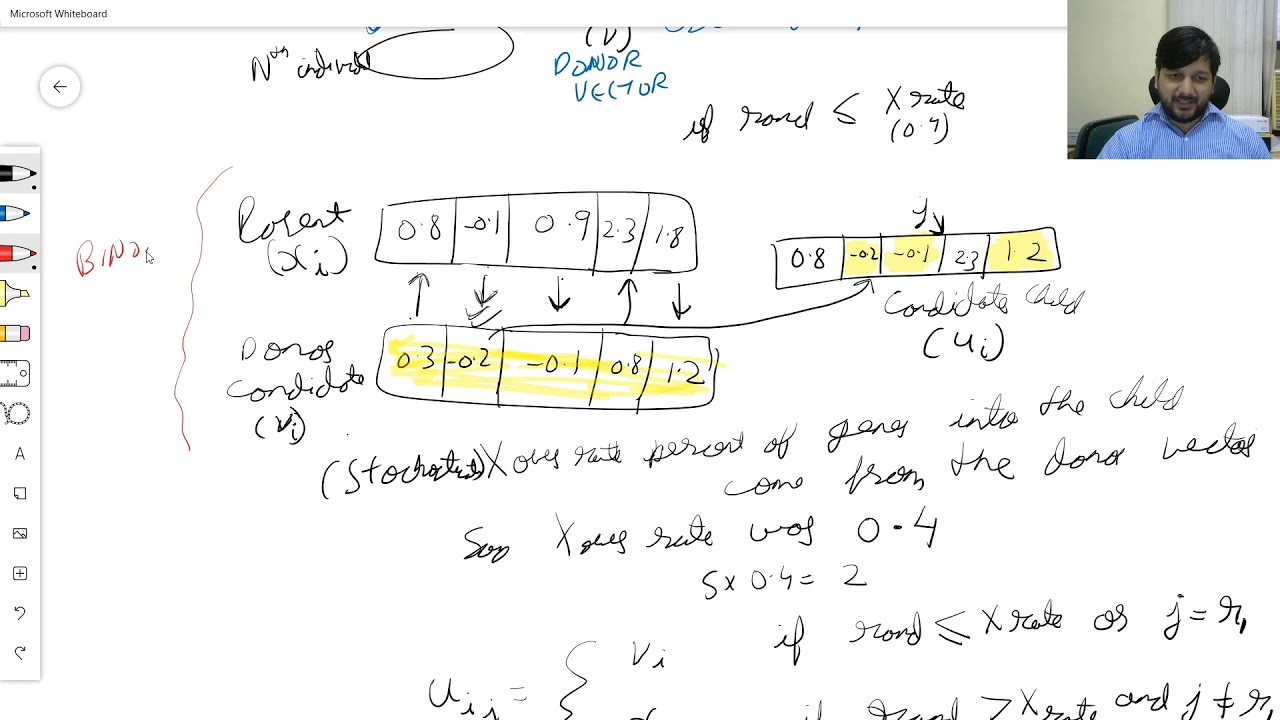 Microsoft Whiteboard
Nth individ
(V)
DONOR
VECTOR
if rand ≤ X rate
(0.4)
BINO
Parent
(xi)
0.8 -0.1 0.9 2.3 1.8
j
0.8 -0.2 -0.1 2.3 1.2
Candidate Child
(ui)
Donor
Candidate
(vi)
0.3 -0.2 -0.1 0.8 1.2
X over rate percent of genes into the child
come from the donor vector
Sup X over rate was 0.4
5 x 0.4 = 2
if rand ≤ X rate or j = r1
Vi
uij = {
if rand > X rate and j ≠ r1
A